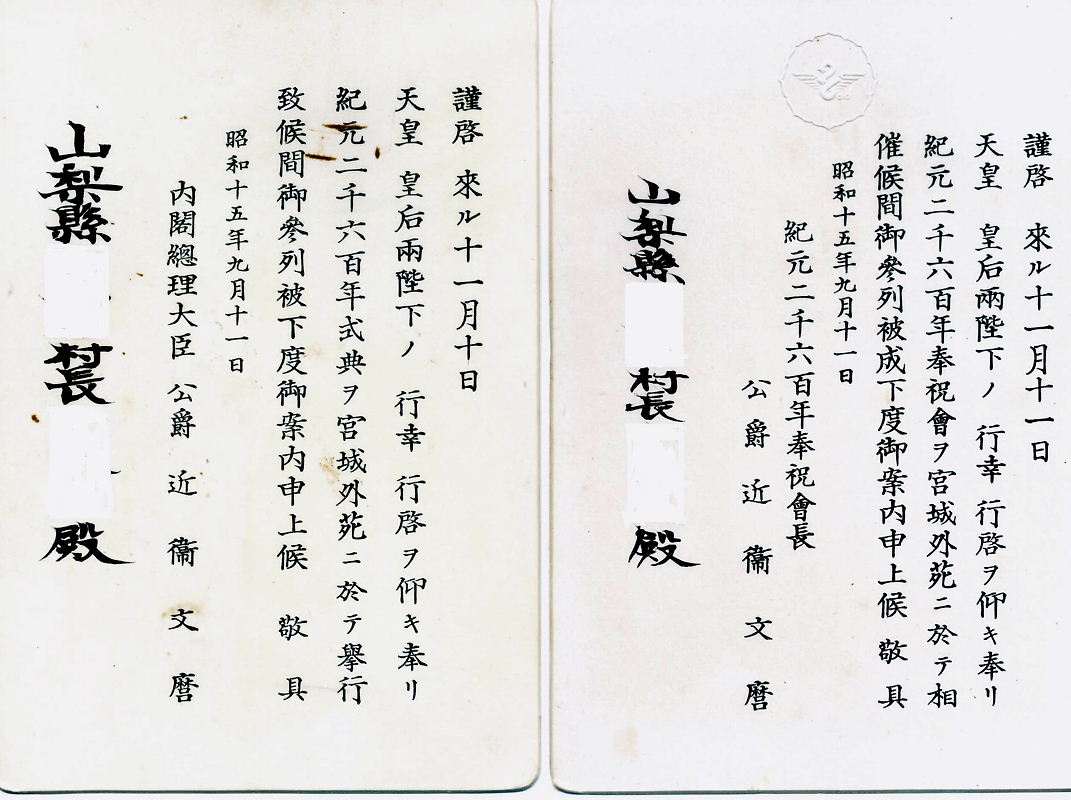 謹啓 來ル十一月十一日
天皇 皇后兩陛下ノ 行幸 行啓ヲ仰キ奉リ
紀元二千六百年奉祝會ヲ宮城外苑ニ於テ相
催候間御參列被成下度御案內申上候 敬具
昭和十五年九月十一日
紀元二千六百年奉祝會長
公爵 近衞文麿
山梨縣 村長 殿
謹啓 來ル十一月十日
天皇 皇后兩陛下ノ 行幸 行啓ヲ仰キ奉リ
紀元二千六百年式典ヲ宮城外苑ニ於テ擧行
致候間御參列被下度御案內申上候 敬具
昭和十五年九月十一日
內閣總理大臣 公爵 近衞文麿
山梨縣 村長 殿